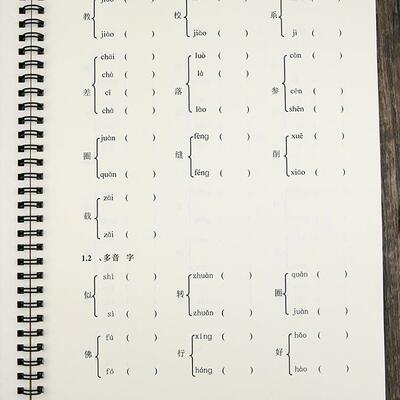 教 校 系
jiào ( ) jiào ( ) jì ( )
chāi ( ) luò ( ) cān ( )
chà ( ) là ( )
差 落 参
cī ( ) cēn ( )
chā ( ) lào ( ) shēn ( )
juàn ( ) fèng ( ) xuē ( )
圈 缝 削
quān ( ) féng ( ) xiāo ( )
zài ( )
载
zǎi ( )
1.2 、多音 字
shì ( ) zhuàn ( ) quān ( )
似 转 圈
sì ( ) zhuǎn ( ) juàn ( )
fú ( ) xíng ( ) hǎo ( )
佛 行 好
fó ( ) háng ( ) hào ( )